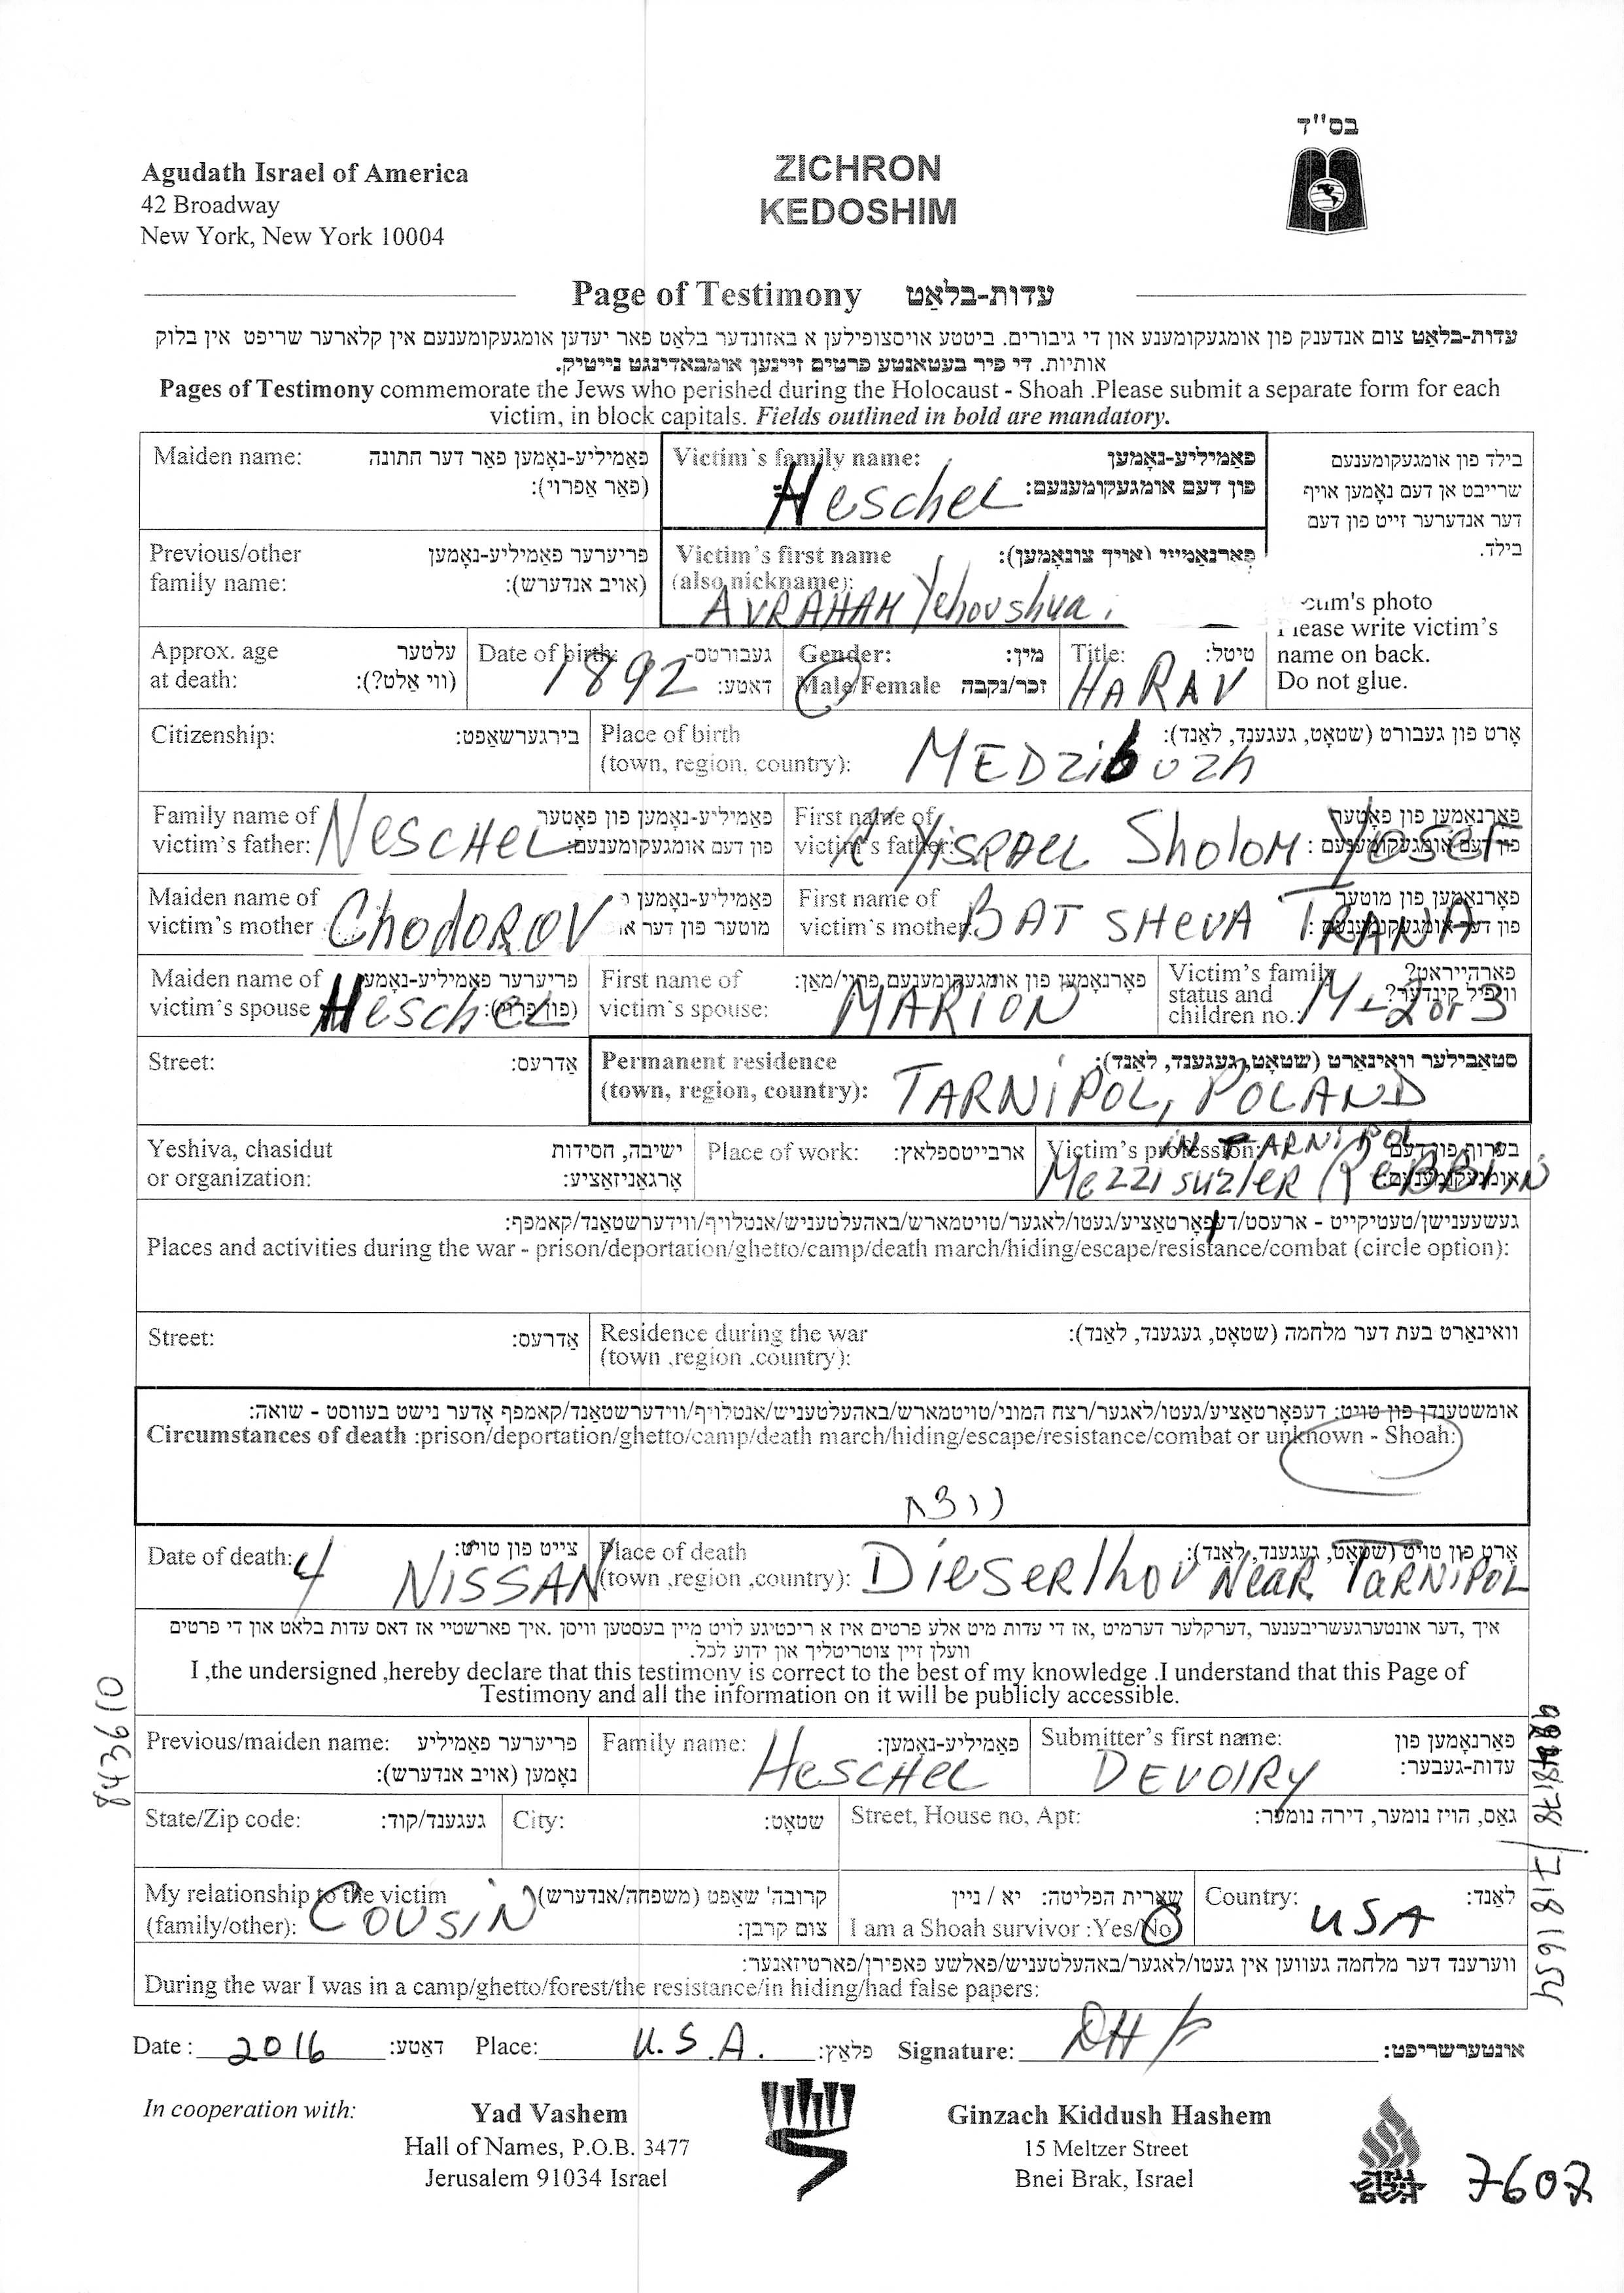 בס"ד
Agudath Israel of America
42 Broadway
New York, New York 10004
ZICHRON
KEDOSHIM
Page of Testimony עדות-בלאַט
עדות-בלאַט צום אנדענק פון אומגעקומענע און די גיבורים. ביטטע אויסצופילען א באזונדער בלאַט פאר יעדען אומגעקומענעם אין קלארער שריפט אין בלוק
אותיות. די פיר בעטאנטע פרטים זיינען אומבאדינגט נייטיק.
Pages of Testimony commemorate the Jews who perished during the Holocaust - Shoah .Please submit a separate form for each
victim, in block capitals. Fields outlined in bold are mandatory.
Maiden name: פאַמיליע-נאָמען פאר דער חתונה
(פאַר אַפרוי):
Victim's family name: פאַמיליע-נאָמען
פון דעם אומגעקומענעם:
Heschel
בילד פון אומגעקומענעם
שרייבט אן דעם נאָמען אויף
דער אנדערער זייט פון דעם
בילד.
Previous/other פריערער פאַמיליע-נאָמען
family name: (אויב אנדערש):
Victim's first name (אויך צונאָמען):
(also nickname):
AVRAHAM Yehoushua
photo
write victim's
name on back.
Do not glue.
Approx. age עלטער
at death: (ווי אלט?):
Date of birth: געבורטס-
דאַטע:
1892
Gender: מין:
Male/Female זכר/נקבה
Title: טיטל:
HARAV
Citizenship: בירגערשאַפט:
Place of birth אָרט פון געבורט (שטאָט, געגענד, לאַנד):
(town, region, country):
MEDZibuzh
Family name of פאַמיליע-נאָמען פון פאָטער
victim's father: פון דעם אומגעקומענעם:
NescHel
First name of פאַרנאָמען פון פאָטער
victim's father: פון דעם אומגעקומענעם:
YisRAEL SholoM Yosef
Maiden name of פאַמיליע-נאָמען
victim's mother מוטער פון דער
ChodoROV
First name of פאַרנאָמען פון מוטער
victim's mother:
BAT SHeVA TRANA
Maiden name of פריערער פאַמיליע-נאָמע
victim's spouse (פון פרוי):
Heschel
First name of פאַרנאָמען פון אומגעקומענעם פרוי/מאַן:
victim's spouse:
MARION
Victim's family פארהייראט?
status and וויפיל קינדער?
children no.:
M - 2 or 3
Street: אַדרעס:
Permanent residence סטאַבילער וואוינאָרט (שטאָט, געגענד, לאַנד):
(town, region, country):
TARNiPOL, POLAND
Yeshiva, chasidut ישיבה, חסידות
or organization: אָרגאַניזאַציע:
Place of work: ארבייטספלאץ:
Victim's profession:
IN TARNiPOl
געשעענישן/טעטיקייט - ארעסט/דעפּאָרטאַציע/געטו/לאגער/טויטמארש/באהעלטעניש/אנטלויף/ווידערשטאַנד/קאמפף:
Places and activities during the war - prison/deportation/ghetto/camp/death march/hiding/escape/resistance/combat (circle option):
Street: אַדרעס:
Residence during the war וואוינאָרט בעת דער מלחמה (שטאָט, געגענד, לאַנד):
(town ,region .country):
אומשטענדן פון טויט: דעפּאָרטאַציע/געטו/לאגער/רצח המוני/טויטמארש/באהעלטעניש/אנטלויף/ווידערשטאַנד/קאמפף אָדער נישט בעוווסט - שואה:
Circumstances of death :prison/deportation/ghetto/camp/death march/hiding/escape/resistance/combat or unknown - Shoah:
נרצח
Date of death: צייט פון טויט:
4 NISSAN
Place of death אָרט פון טויט (שטאָט, געגענד, לאַנד):
(town ,region ,country):
NeaR TaRNiPOL
איך ,דער אונטערגעשריבענער ,דערקלער דערמיט ,אז די עדות מיט אלע פרטים איז א ריכטיגע לויט מיין בעסטען וויסן .איך פארשטיי אז דאס עדות בלאט און די פרטים
וועלן זיין צוטריטליך און ידוע לכל.
I ,the undersigned ,hereby declare that this testimony is correct to the best of my knowledge .I understand that this Page of
Testimony and all the information on it will be publicly accessible.
843610
Previous/maiden name: פריערער פאַמיליע
נאָמען (אויב אנדערש):
Family name: פאַמיליע-נאָמען:
HescHel
Submitter's first name: פאַרנאָמען פון
עדות-געבער:
DEVOIRY
State/Zip code: געגענד/קוד:
City: שטאָט:
Street, House no, Apt: גאַס, הויז נומער, דירה נומער:
My relationship to the victim קרובה' שאַפט (משפחה/אנדערש)
(family/other): צום קרבן:
COUSIN
שארית הפליטה: יא / ניין
I am a Shoah survivor :Yes/No
Country: לאַנד:
USA
ווערענד דער מלחמה געווען אין געטו/לאגער/באהעלטעניש/פאלשע פאפירן/פארטיזאנער:
During the war I was in a camp/ghetto/forest/the resistance/in hiding/had false papers:
Date : 2016 דאַטע: Place: U.S.A. פלאַץ: Signature: DH אונטערשריפט:
In cooperation with:
Yad Vashem
Hall of Names, P.O.B. 3477
Jerusalem 91034 Israel
Ginzach Kiddush Hashem
15 Meltzer Street
Bnei Brak, Israel
7607